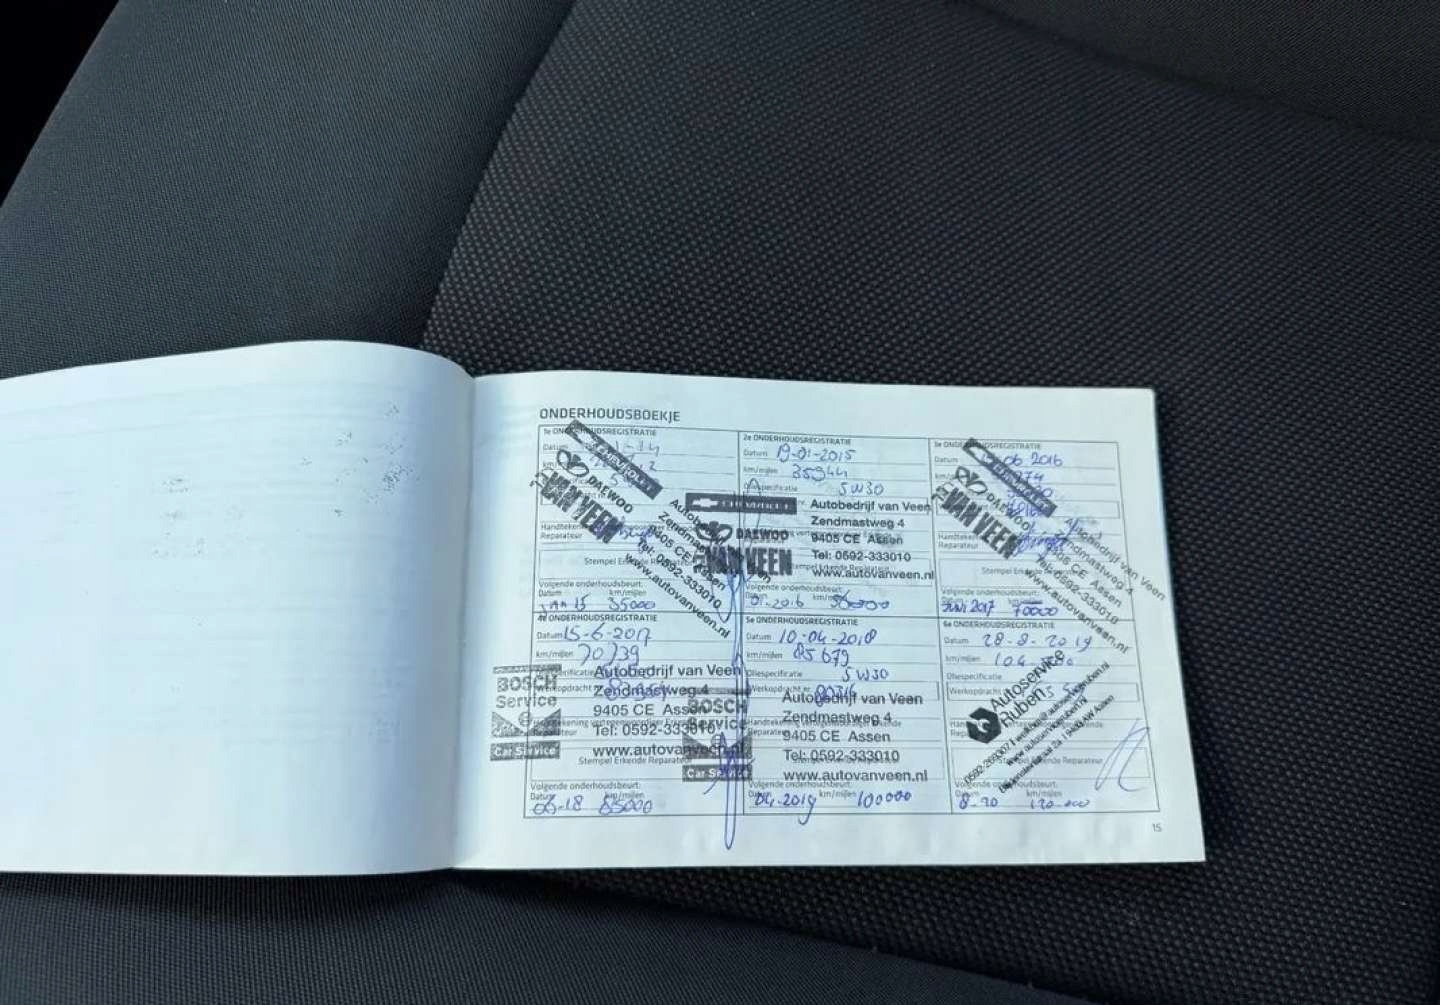 ONDERHOUDSBOEKJE
1e ONDERHOUDSREGISTRATIE
Datum
km/mijlen
Handtekening
Reparateur
Stempel Erkende Reparateur
Volgende onderhoudsbeurt:
Datum km/mijlen
Jan 15 35000
CHEVROLET
DAEWOO
VAN VEEN
Autobedrijf van Veen
Zendmastweg 4
9405 CE Assen
Tel: 0592-333010
www.autovanveen.nl
2e ONDERHOUDSREGISTRATIE
Datum 19-01-2015
km/mijlen 35944
Oliespecificatie 5W30
CHEVROLET
DAEWOO
VAN VEEN
Autobedrijf van Veen
Zendmastweg 4
9405 CE Assen
Tel: 0592-333010
www.autovanveen.nl
Stempel Erkende Reparateur
Volgende onderhoudsbeurt:
Datum km/mijlen
01-2016
3e ONDERHOUDSREGISTRATIE
Datum 06 2016
km/mijlen
Handtekening
Reparateur
CHEVROLET
DAEWOO
VAN VEEN
Autobedrijf van Veen
Zendmastweg 4
9405 CE Assen
Tel: 0592-333010
www.autovanveen.nl
Stempel Erkende Reparateur
Volgende onderhoudsbeurt:
Datum km/mijlen
Juni 2017 70000
4e ONDERHOUDSREGISTRATIE
Datum 15-6-2017
km/mijlen 70739
BOSCH
Service
Car Service
Autobedrijf van Veen
Zendmastweg 4
9405 CE Assen
Tel: 0592-333010
www.autovanveen.nl
Stempel Erkende Reparateur
Volgende onderhoudsbeurt:
Datum km/mijlen
06-18 85000
5e ONDERHOUDSREGISTRATIE
Datum 10-04-2018
km/mijlen 85679
Oliespecificatie 5W30
Werkopdracht nr.
BOSCH
Service
Car Service
Autobedrijf van Veen
Zendmastweg 4
9405 CE Assen
Tel: 0592-333010
www.autovanveen.nl
Volgende onderhoudsbeurt:
Datum km/mijlen
04-2019 100000
6e ONDERHOUDSREGISTRATIE
Datum 28-8-2019
km/mijlen
Oliespecificatie
Werkopdracht
Autoservice
Ruben
www.autoserviceruben.nl
Stempel Erkende Reparateur
Volgende onderhoudsbeurt:
Datum km/mijlen
8-20 120.000
15